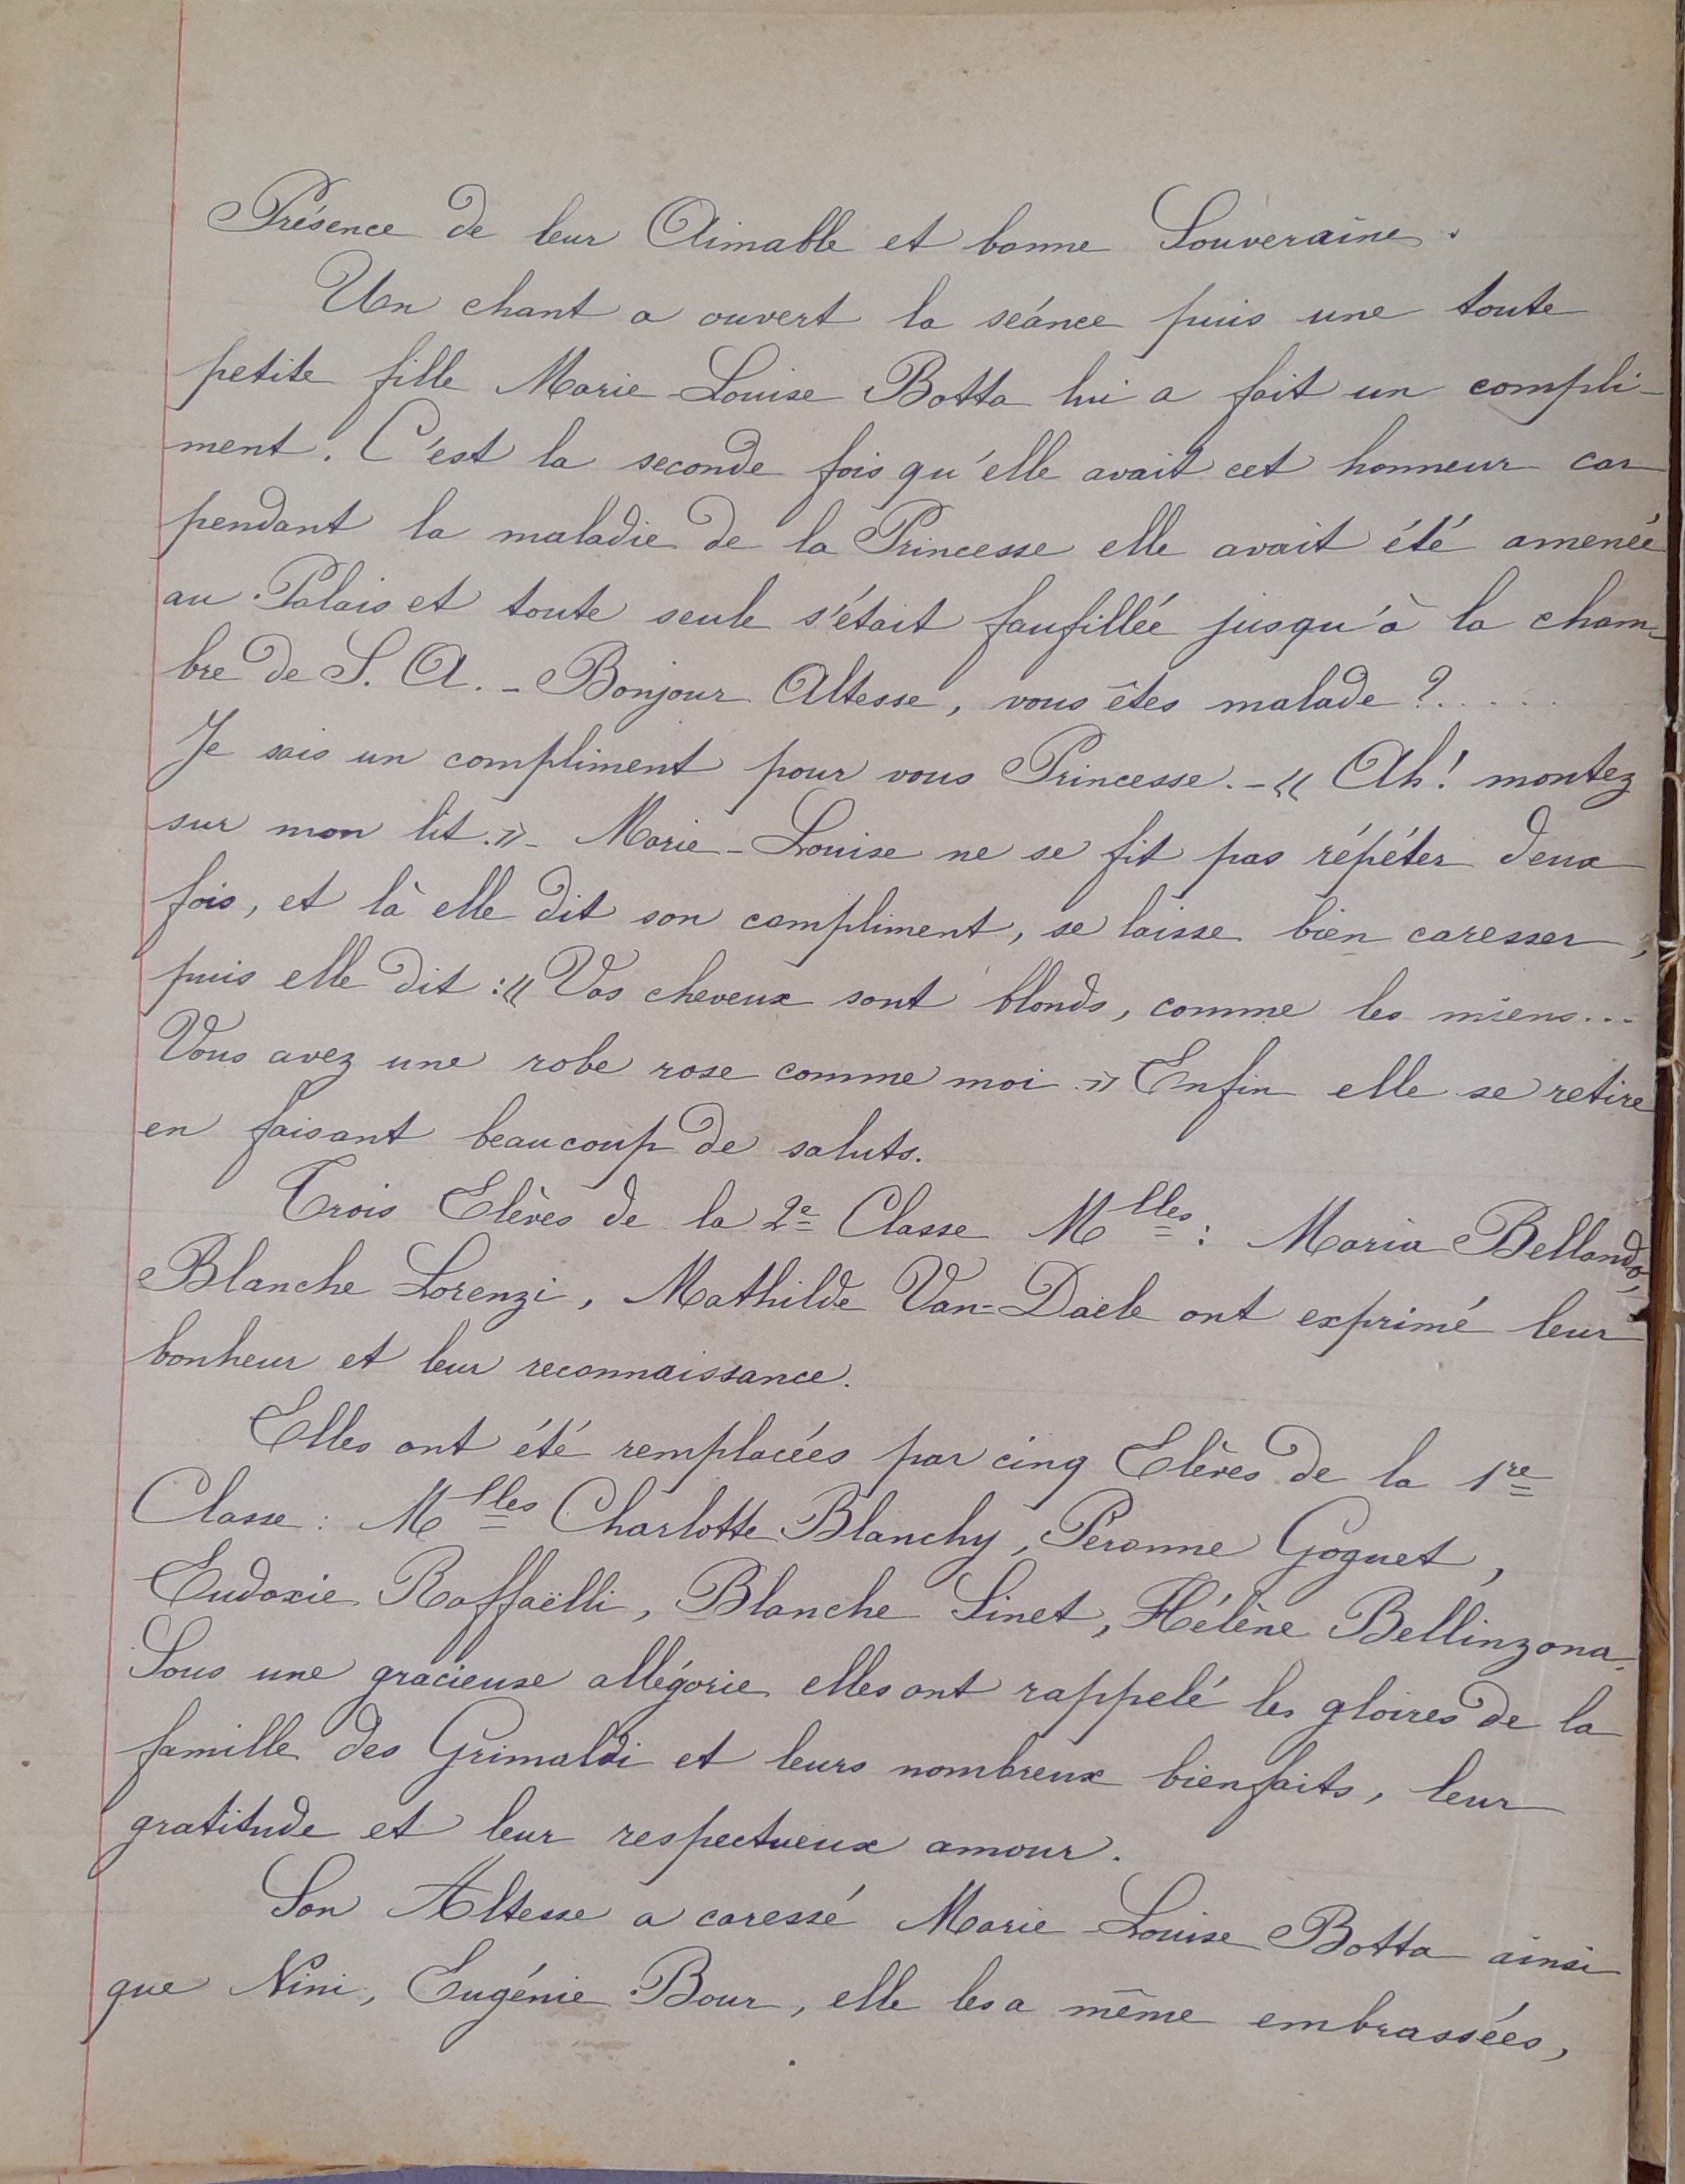 Présence de leur Aimable et bonne Souveraine.
Un chant a ouvert la séance puis une toute
petite fille Marie-Louise Botta lui a fait un compli-
ment. C'est la seconde fois qu'elle avait cet honneur car
pendant la maladie de la Princesse elle avait été amenée
au Palais et toute seule s'était faufillée jusqu'à la cham-
bre de S. A. - Bonjour Altesse, vous êtes malade ?.....
Je sais un compliment pour vous Princesse. - « Ah ! montez
sur mon lit. » - Marie-Louise ne se fit pas répéter deux
fois, et là elle dit son compliment, se laisse bien caresser,
puis elle dit : « Vos cheveux sont blonds, comme les miens...
Vous avez une robe rose comme moi. » Enfin elle se retire
en faisant beaucoup de saluts.
Trois Elèves de la 2e Classe Mlles : Maria Bellando,
Blanche Lorenzi, Mathilde Van-Daele ont exprimé leur
bonheur et leur reconnaissance.
Elles ont été remplacées par cinq Elèves de la 1re
Classe : Mlles Charlotte Blanchy, Péronne Goguet,
Eudoxie Raffaëlli, Blanche Linet, Hélène Bellinzona.
Sous une gracieuse allégorie elles ont rappelé les gloires de la
famille des Grimaldi et leurs nombreux bienfaits, leur
gratitude et leur respectueux amour.
Son Altesse a caressé Marie-Louise Botta ainsi
que Nini, Eugénie Bour, elle les a même embrassées,